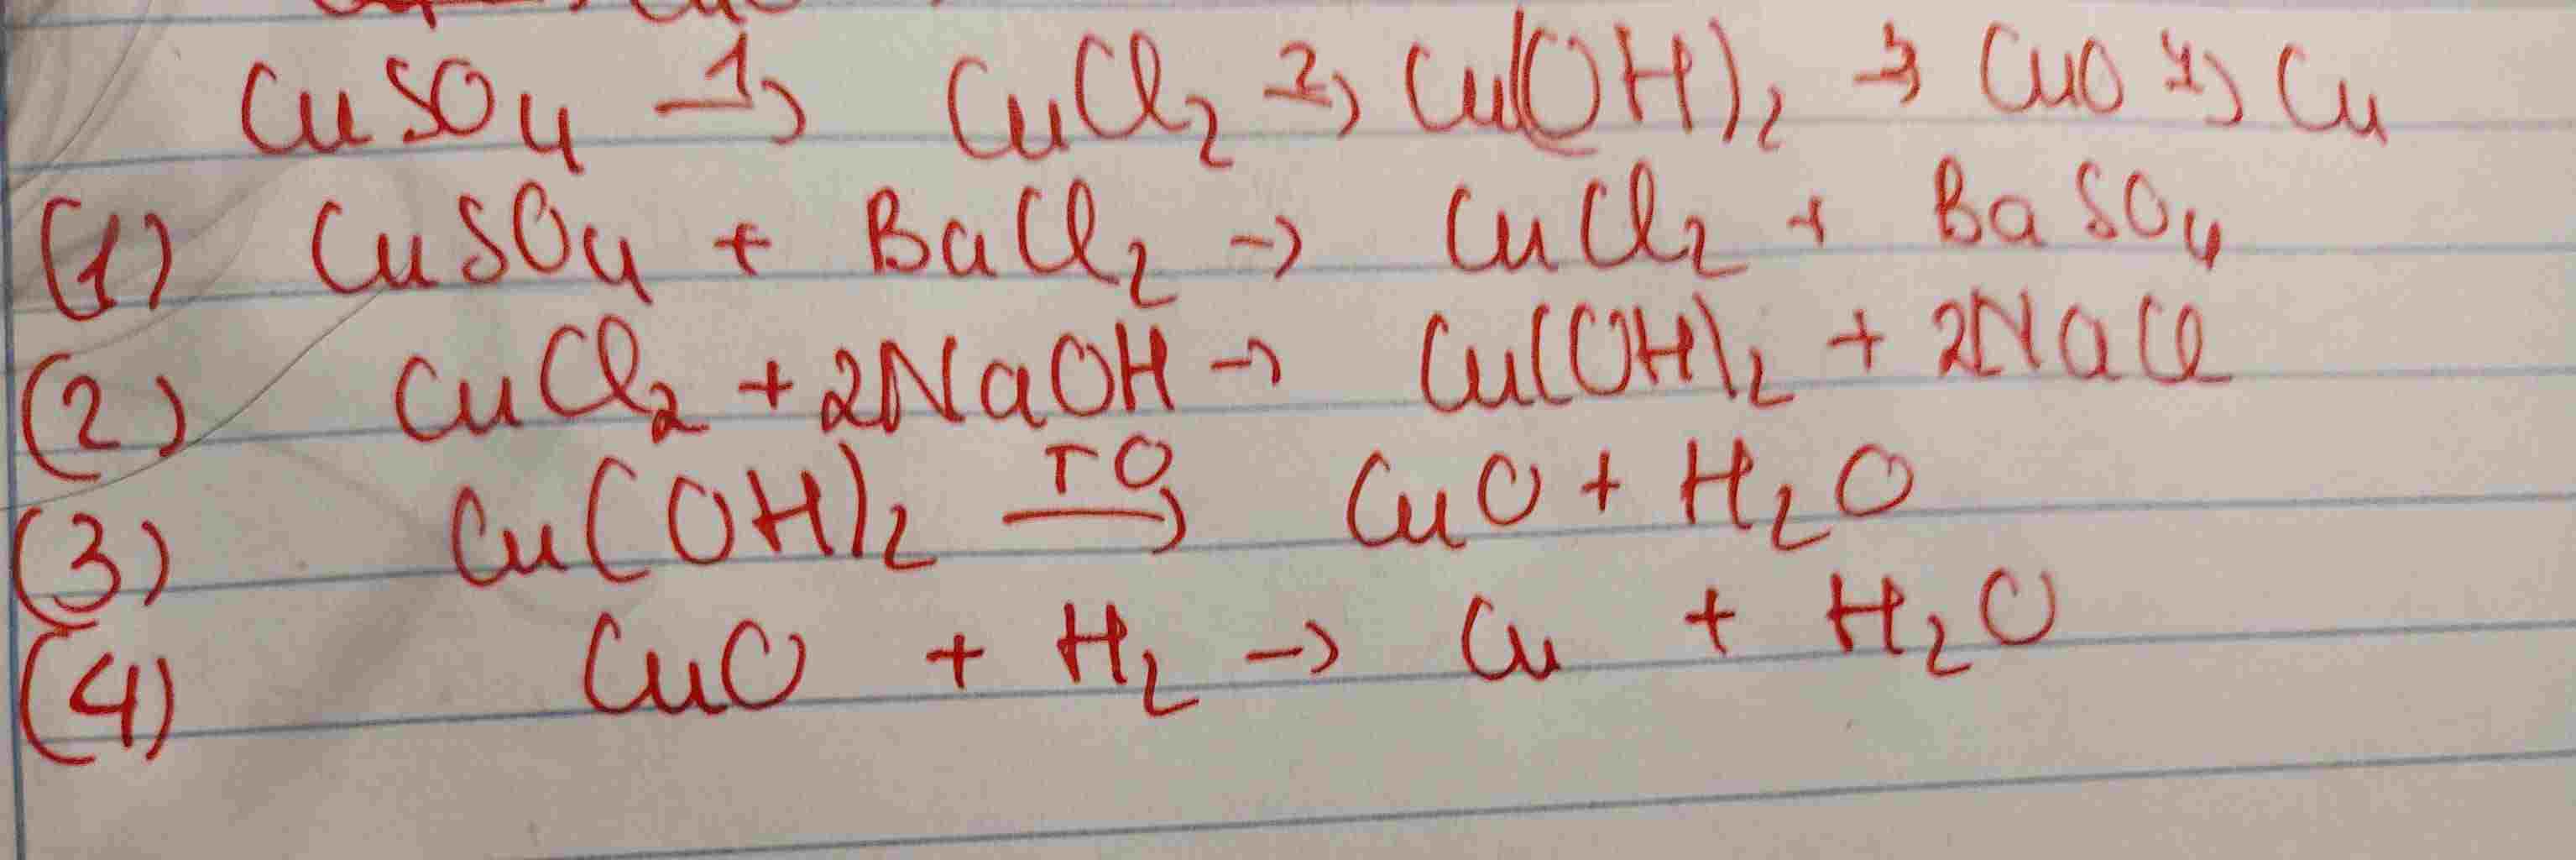 CuSO4 1→ CuCl2 2→ Cu(OH)2 →3 CuO 4→ Cu
(1) CuSO4 + BaCl2 → CuCl2 + BaSO4
(2) CuCl2 + 2NaOH → Cu(OH)2 + 2NaCl
(3) Cu(OH)2 TO→ CuO + H2O
(4) CuO + H2 → Cu + H2O